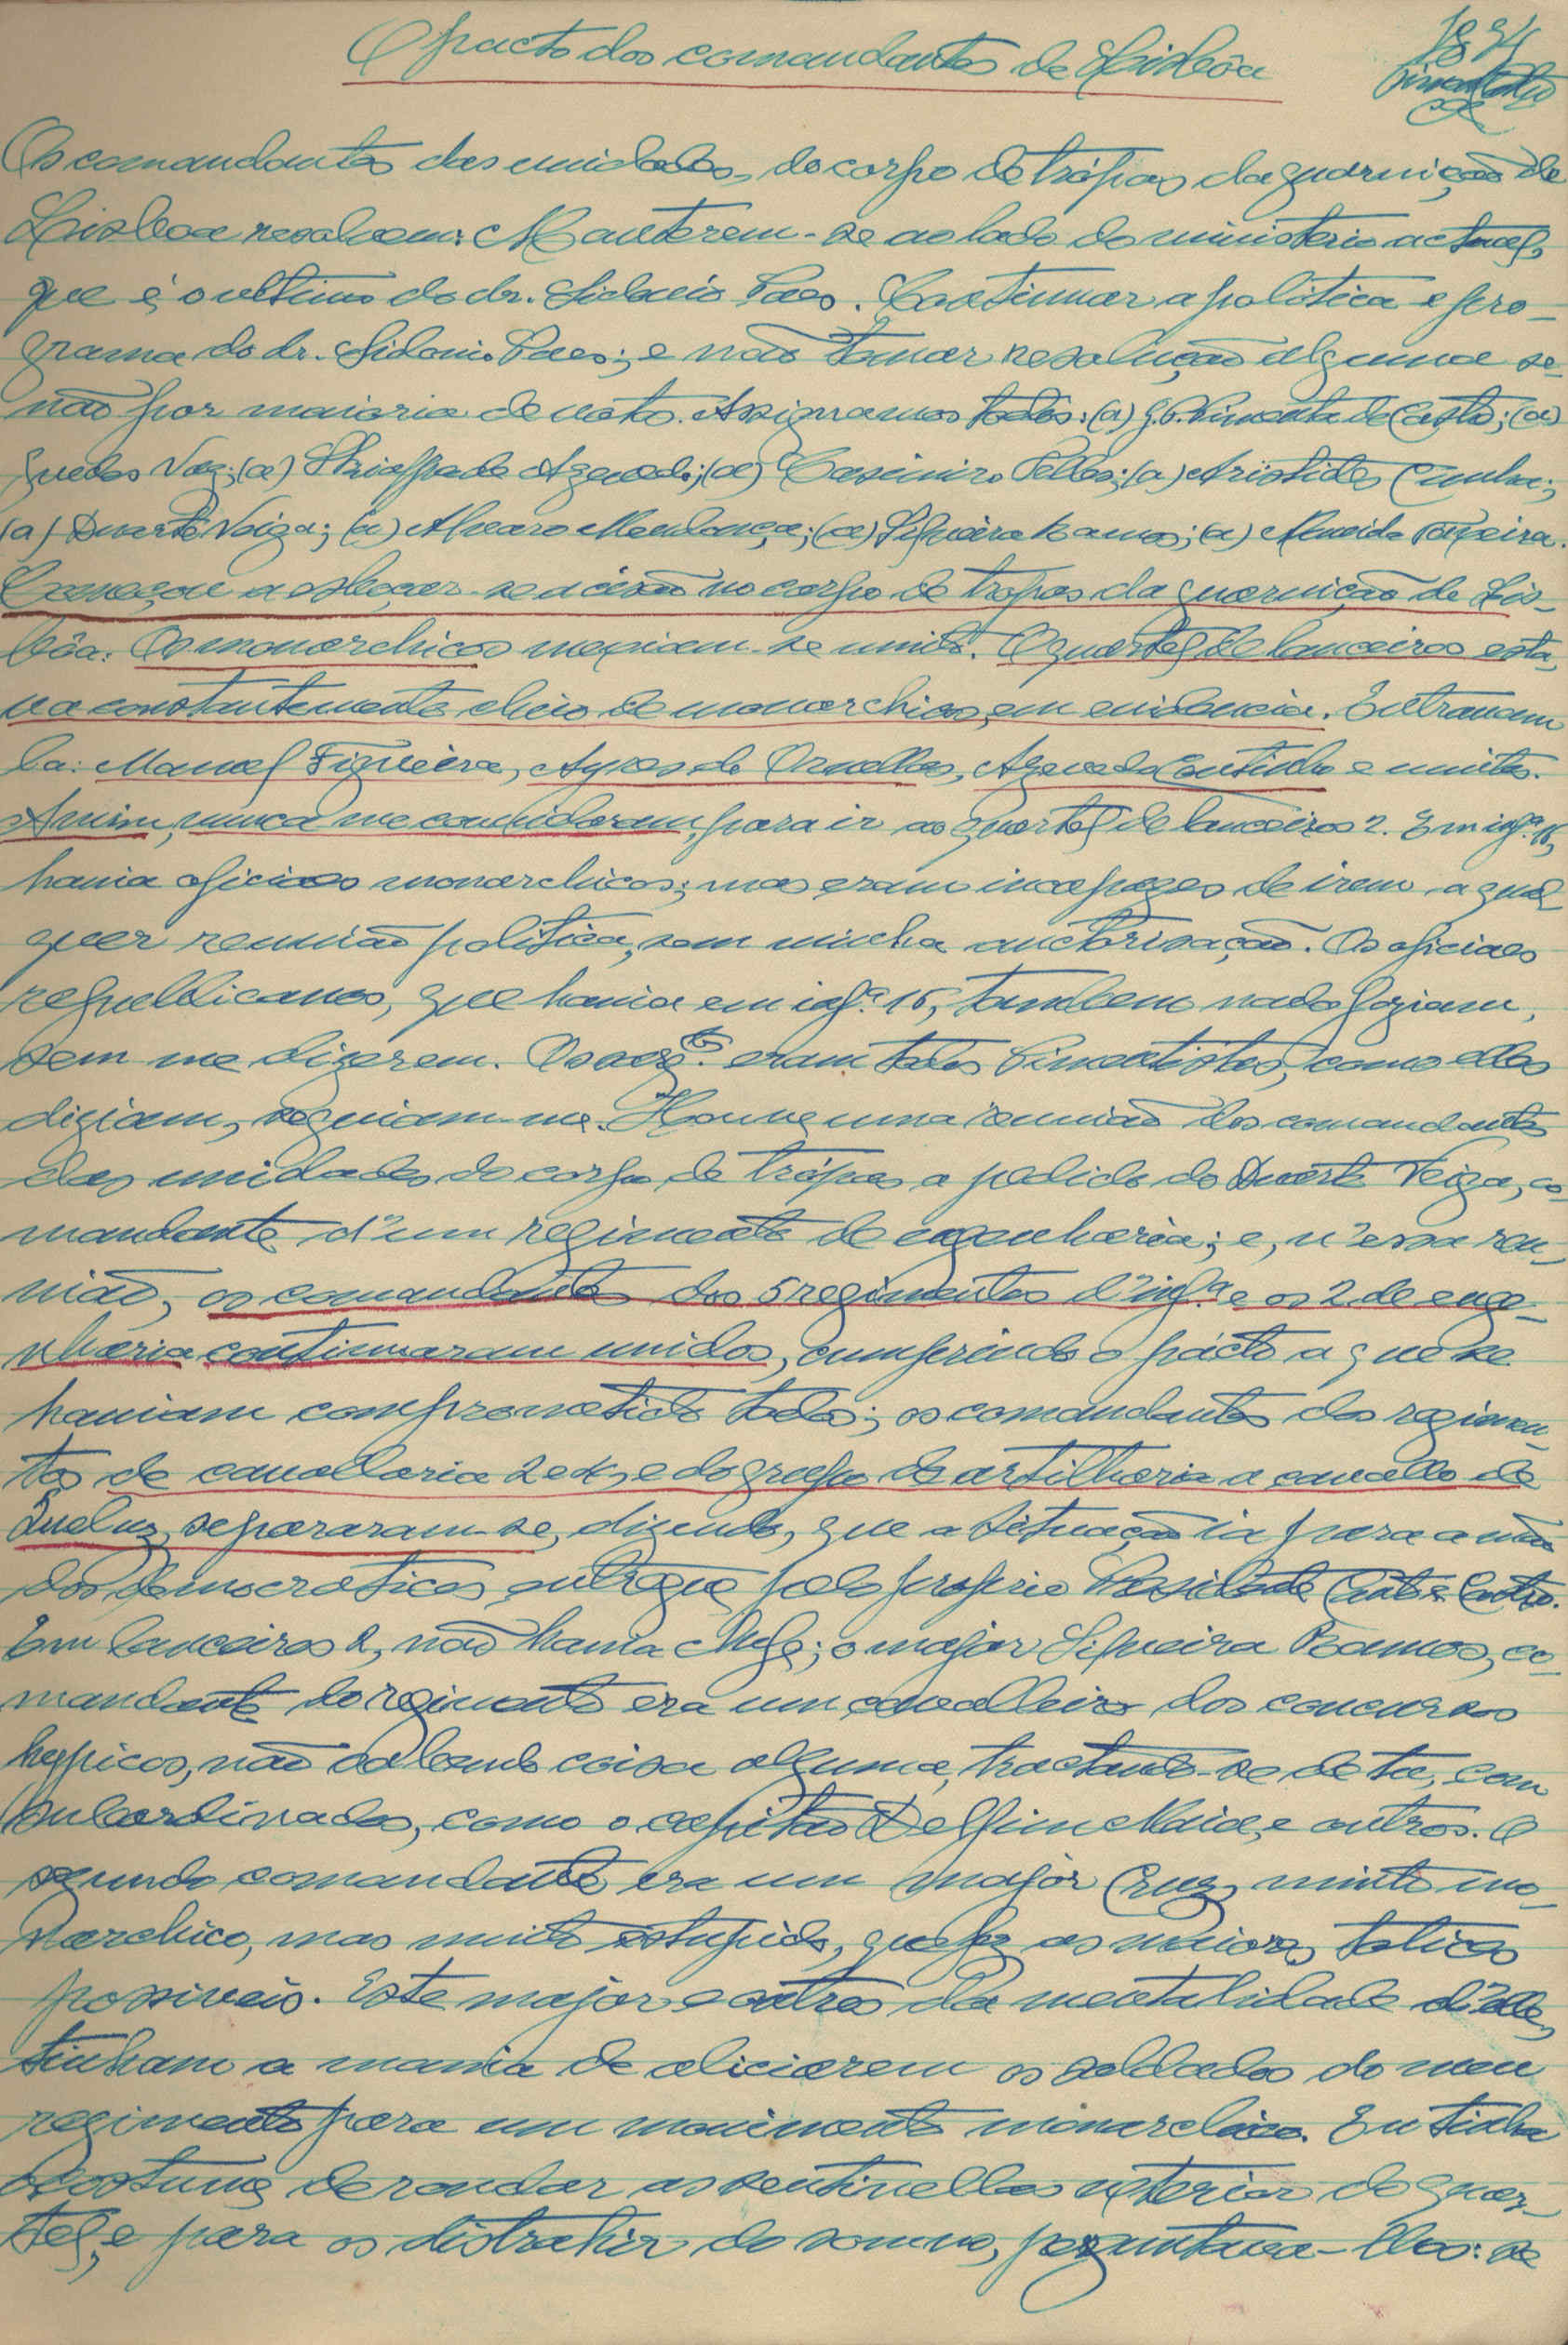 O pacto dos comandantes de Lisbôa
Os comandantes das unidades, do corpo de trópas da guarnição de
Lisboa resolvem: Manterem-se ao lado do ministerio actual,
que é o ultimo do dr. Sidonio Paes. Continuar a politica e pro-
grama do dr. Sidonio Paes; e não tomar resolução alguma se-
não por maioria de voto. Assignamos todos: (a) J. C. Pimenta de Castro; (a)
Guedes Vaz; (a) Azevedo; (a) Casimiro Telles; (a) Aristides Cunha;
(a) Duarte Veiga; (a) Alvaro Mendonça; (a) Silveira Ramos; (a) Almeida Teixeira.
Começou a esboçar-se a cisão no corpo de tropas da guarnição de Lis-
bôa. Os monarchicos mexiam-se muito. O quartel de lanceiros esta-
va constantemente cheio de monarchicos, em evidencia. Entravam
la: Manoel Figueira, Ayres de Ornellas, Azevedo Coutinho e muitos.
A mim, nunca me convidaram, para ir ao quartel de lanceiros 2. Em infª. 16,
havia oficiaes monarchicos; mas eram incapazes de irem a qual-
quer reunião politica, sem minha auctorisação. Os oficiaes
republicanos, que havia em infª. 16, tambem nada faziam,
sem me dizerem. Os sargtos. eram todos Pimentistas, como elles
diziam, seguiam-me. Houve uma reunião dos comandantes
das unidades do corpo de trópas a pedido do Duarte Veiga, co-
mandante d'um regimento de engenharia; e, n'essa reu-
nião, os comandantes dos 5 regimentos d'infª. e os 2 de enge-
nharia continuaram unidos, cumprindo o pácto a que se
haviam comprometido todos; os comandantes dos regimen-
tos de cavallaria 2 e 4, e do grupo de artilharia a cavallo de
Queluz, separaram-se, dizendo, que a situação ia para a mão
dos democraticos, entregue pelo proprio Presidente Canto e Castro.
Em lanceiros 2, não havia chefe; o major Silveira Ramos, co-
mandante do regimento era um cavalleiro dos concursos
hyppicos, não sabendo coisa alguma, tractando-se de tu, com
subordinados, como o capitão Delfim Maia, e outros. O
segundo comandante era um major Cruz, muito mo-
narchico, mas muito estupido, que fez as maiores tolices
possiveis. Este major e outros da mentalidade d'elle,
tinham a mania de aliciarem os soldados do meu
regimento para um movimento monarchico. Eu tinha
o costume de rondar as sentinellas do quar-
tel, e para os distrahir do somno, perguntava-lhes: se